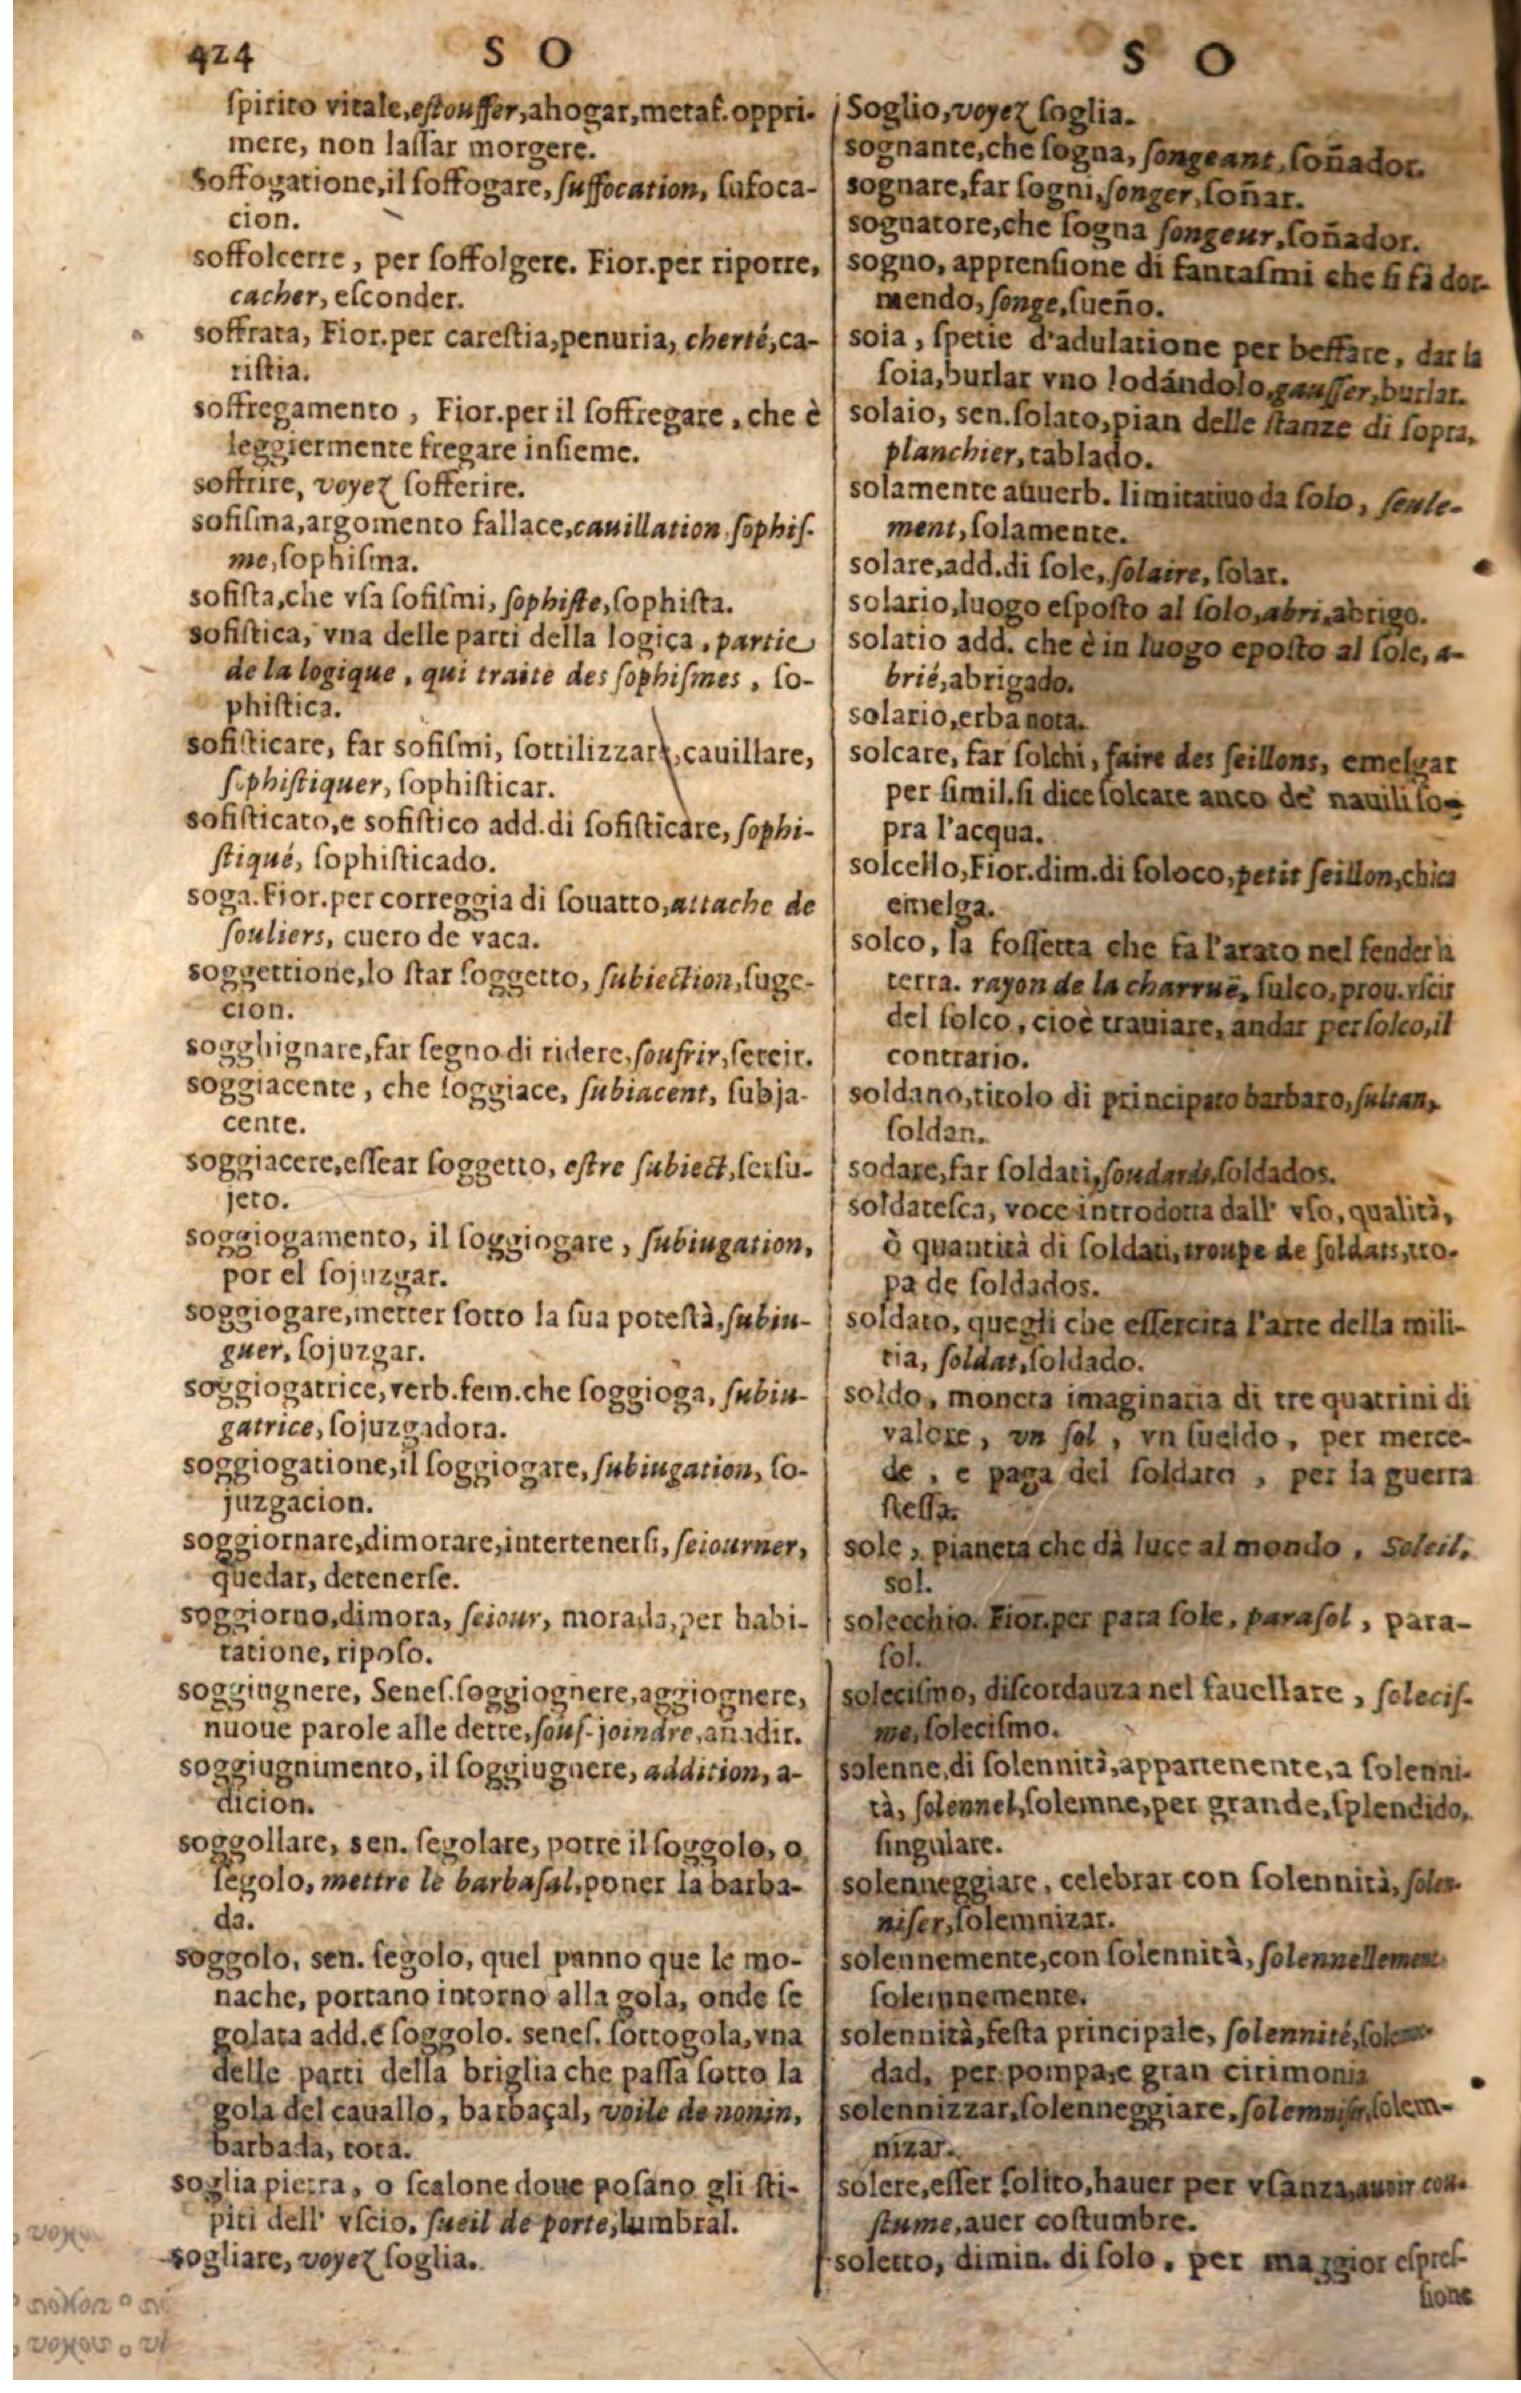 424 S O S O
ſpirito vitale, eſtouffer, ahogar, metaf. oppri-
mere, non laſſar morgere.
Soffogatione, il ſoffogare, ſuffocation, ſufoca-
cion.
soffolcerre, per ſoffolgere. Fior. per riporre,
cacher, eſconder.
soffrata, Fior. per careſtia, penuria, cherté, ca-
riſtia.
soffregamento, Fior. per il ſoffregare, che è
leggiermente fregare inſieme.
soffrire, voyez ſofferire.
sofiſma, argomento fallace, cauillation, ſophiſ-
me, ſophiſma.
sofiſta, che vſa ſofiſmi, ſophiſte, ſophiſta.
sofiſtica, vna delle parti della logica, partie
de la logique, qui traite des ſophiſmes, ſo-
phiſtica.
sofiſticare, far sofiſmi, ſottilizzare, cauillare,
ſophiſtiquer, ſophiſticar.
sofiſticato, e sofiſtico add. di ſofiſticare, ſophi-
ſtiqué, ſophiſticado.
soga. Fior. per correggia di ſouatto, attache de
ſouliers, cuero de vaca.
soggettione, lo ſtar ſoggetto, ſubiection, ſuge-
cion.
sogghignare, far ſegno di ridere, ſoufrir, ſereir.
soggiacente, che ſoggiace, ſubiacent, ſubja-
cente.
soggiacere, eſſear ſoggetto, eſtre ſubiect, ſerſu-
jeto.
soggiogamento, il ſoggiogare, ſubiugation,
por el ſojuzgar.
soggiogare, metter ſotto la ſua poteſtà, ſubiu-
guer, ſojuzgar.
soggiogatrice, verb. fem. che ſoggioga, ſubiu-
gatrice, ſojuzgadora.
soggiogatione, il ſoggiogare, ſubiugation, ſo-
juzgacion.
soggiornare, dimorare, intertenerſi, ſeiourner,
quedar, detenerſe.
soggiorno, dimora, ſeiour, morada, per habi-
tatione, ripoſo.
soggingnere, Seneſ. ſoggiognere, aggiognere,
nuoue parole alle dette, ſouſ-joindre, añadir.
soggiugnimento, il ſoggiugnere, addition, a-
dicion.
soggollare, sen. ſegolare, porre il ſoggolo, o
ſegolo, mettre le barbaſal, poner la barba-
da.
soggolo, sen. ſegolo, quel panno que le mo-
nache, portano intorno alla gola, onde ſe
golata add. e ſoggolo. seneſ. ſottogola, vna
delle parti della briglia che paſſa ſotto la
gola del cauallo, barbaçal, voile de nonin,
barbada, tota.
soglia pietra, o ſcalone doue poſano gli ſti-
piti dell' vſcio, ſueil de porte, lumbral.
sogliare, voyez ſoglia.
Soglio, voyez ſoglia.
sognante, che ſogna, ſongeant, ſoñador.
sognare, far ſogni, ſonger, ſoñar.
sognatore, che ſogna ſongeur, ſoñador.
sogno, apprenſione di fantaſmi che ſi fà dor-
mendo, ſonge, ſueño.
soia, ſpetie d'adulatione per beffare, dar la
ſoia, burlar vno lodándolo, gauſſer, burlar.
solaio, sen. ſolato, pian delle ſtanze di ſopra,
planchier, tablado.
solamente auuerb. limitatiuo da ſolo, ſeule-
ment, ſolamente.
solare, add. di ſole, ſolaire, ſolar.
solario, luogo eſpoſto al ſolo, abri, abrigo.
solatio add. che è in luogo epoſto al ſole, a-
brié, abrigado.
solario, erba nota.
solcare, far ſolchi, faire des ſeillons, emelgar
per ſimil. ſi dice ſolcare anco de' nauili ſo-
pra l'acqua.
solcello, Fior. dim. di ſoloco, petit ſeillon, chica
emelga.
solco, la foſſetta che fa l'arato nel fender la
terra. rayon de la charruë, ſulco, prou. vſcir
del ſolco, cioè trauiare, andar per ſolco, il
contrario.
soldano, titolo di principato barbaro, ſultan,
ſoldan.
sodare, far ſoldati, ſoudards, ſoldados.
soldateſca, voce introdotta dall' vſo, qualità,
ò quantità di ſoldati, troupe de ſoldats, tro-
pa de ſoldados.
soldato, quegli che eſſercita l'arte della mili-
tia, ſoldat, ſoldado.
soldo, moneta imaginaria di tre quattrini di
valore, vn ſol, vn ſueldo, per merce-
de, e paga del ſoldato, per la guerra
ſteſſa.
sole, pianeta che dà luce al mondo, Soleil,
sol.
solecchio. Fior. per para ſole, paraſol, para-
ſol.
soleciſmo, diſcordauza nel fauellare, ſoleciſ-
me, ſoleciſmo.
solenne, di ſolennità, appartenente, a ſolenni-
tà, ſolennel, ſolemne, per grande, ſplendido,
ſingulare.
solenneggiare, celebrar con ſolennità, ſolen-
niſer, ſolemnizar.
solennemente, con ſolennità, ſolennellement
ſolemnemente.
solennità, feſta principale, ſolennité,
dad, per pompa, e gran cirimonia
solennizzar, ſolenneggiare, ſolemniſer, ſolem-
nizar.
solere, eſſer ſolito, hauer per vſanza, auoir cou-
ſtume, auer coſtumbre.
soletto, dimin. di ſolo, per maggior eſpreſ-
ſione